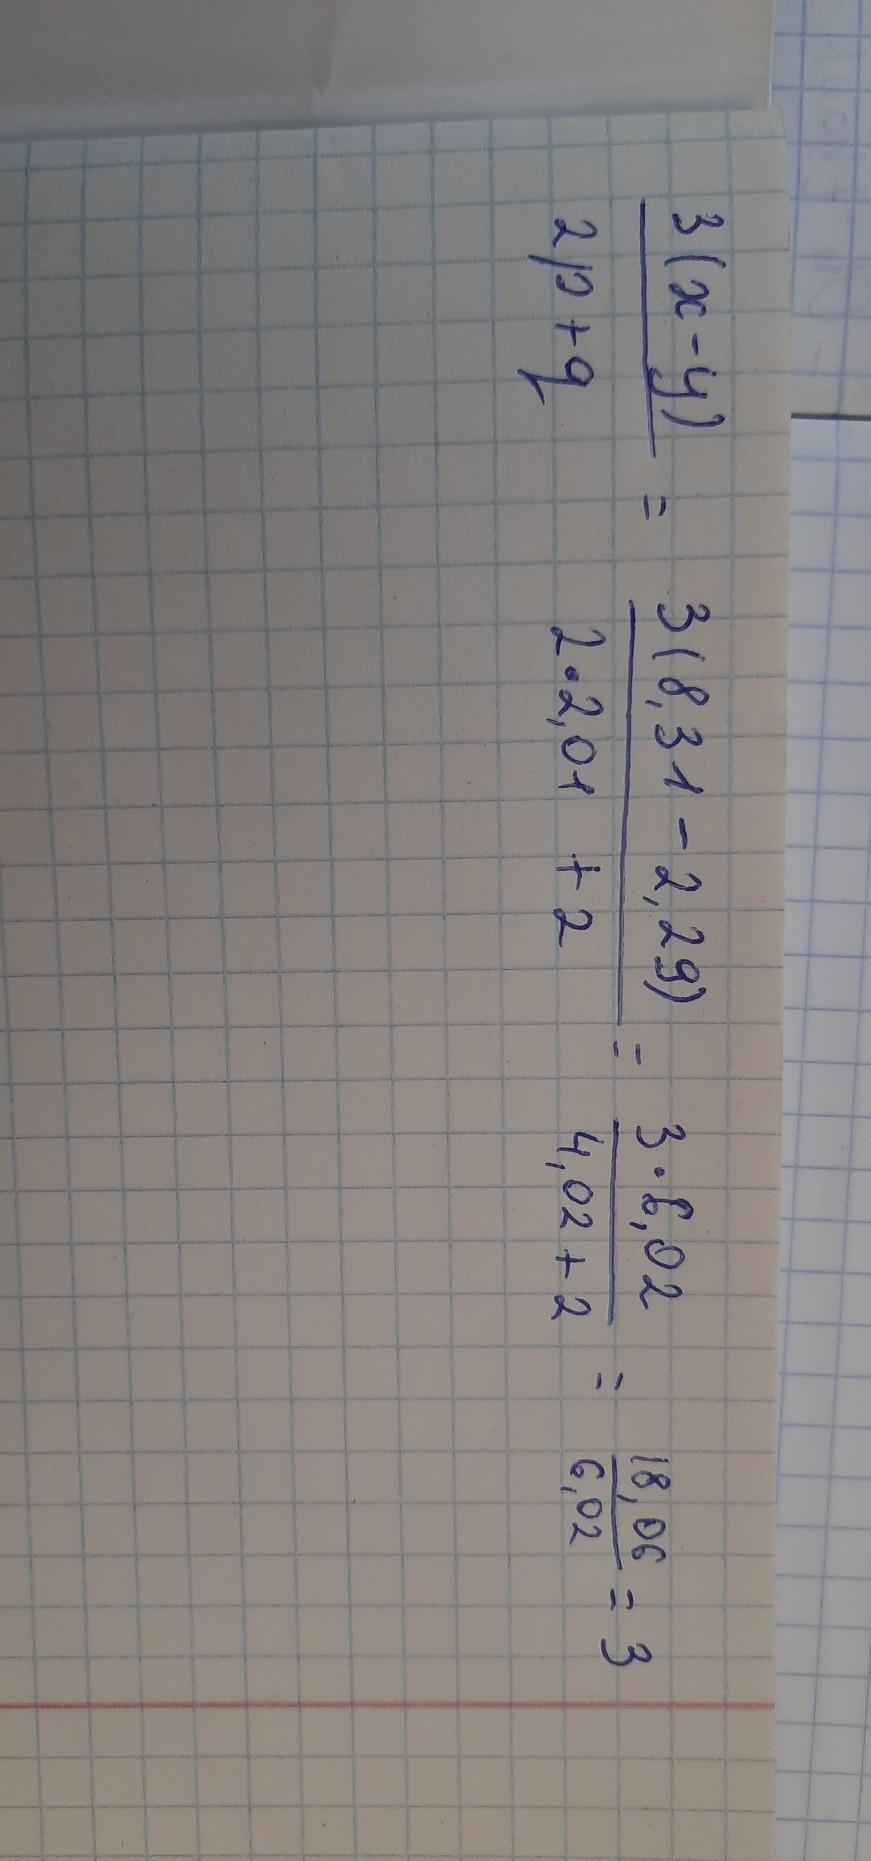 3(x-y)/2p+q = 3(8,31-2,29)/2·2,01+2 = 3·6,02/4,02+2 = 18,06/6,02 = 3